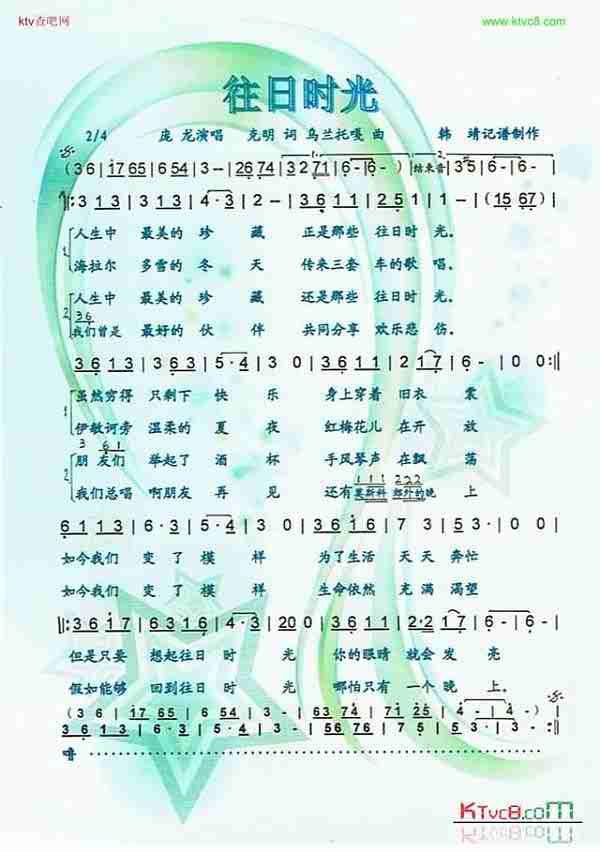 ktv查吧网 www.ktvc8.com
往日时光
2/4 庞 龙演唱 克明 词 乌兰托嘎 曲 韩 靖记谱制作
(3 6 | i 17 65 | 6 54 | 3 - - | 26 74 | 3 2 71 | 6 - | 6 - ) | 结束音 | 3 5 | 6 - | 6 - |
‖: 3 1 3 | 3 1 3 | 4·3 | 2 - | 3 6 1 1 | 2 1 3 | 6 - | (15 67) |
1. 人生中 最美的 珍 藏 正是那些 往日时 光。
海拉尔 多雪的 冬 天 传来三套 车的歌 唱。
2. 人生中 最美的 珍 藏 还是那些 往日时 光。
3 6
我们曾是 最好的 伙 伴 共同分享 欢乐悲 伤。
3 6 1 3 | 3 6 3 | 5·4 | 3 0 | 3 6 1 1 | 2 1 7 | 6 - | 0 0 :‖
1 虽然穷得 只剩下 快 乐 身上穿着 旧衣 裳
伊敏河旁 温柔的 夏 夜 红梅花儿 在开 放
3 6 1
2. 朋 友们 举起了 酒 杯 手风琴声 在飘 荡
1 1 1 2 2 2
我们总唱 啊朋友 再 见 还有莫斯科 郊外的晚 上
6 1 1 3 | 6·3 | 5·4 | 3 0 | 1 3 6 i | 7 3 | 5 3· | 0 0 |
如今我们 变 了 模 样 为了生活 天 天 奔忙
如今我们 变 了 模 样 生命依然 充 满 渴望
‖: 3 6 1 7 | 6 3 1 6 | 4·3 | 20 0 | 3 1 6 1 | 2 1 7 | 6 - | 6 - |
但是只要 想起往日 时 光 你的眼睛 就会 发 亮
假如能够 回到往日 时 光 哪怕只有 一个 晚 上。
(3 6 | i 17 65 | 6 54 3
噜 ……
KTvc8.com